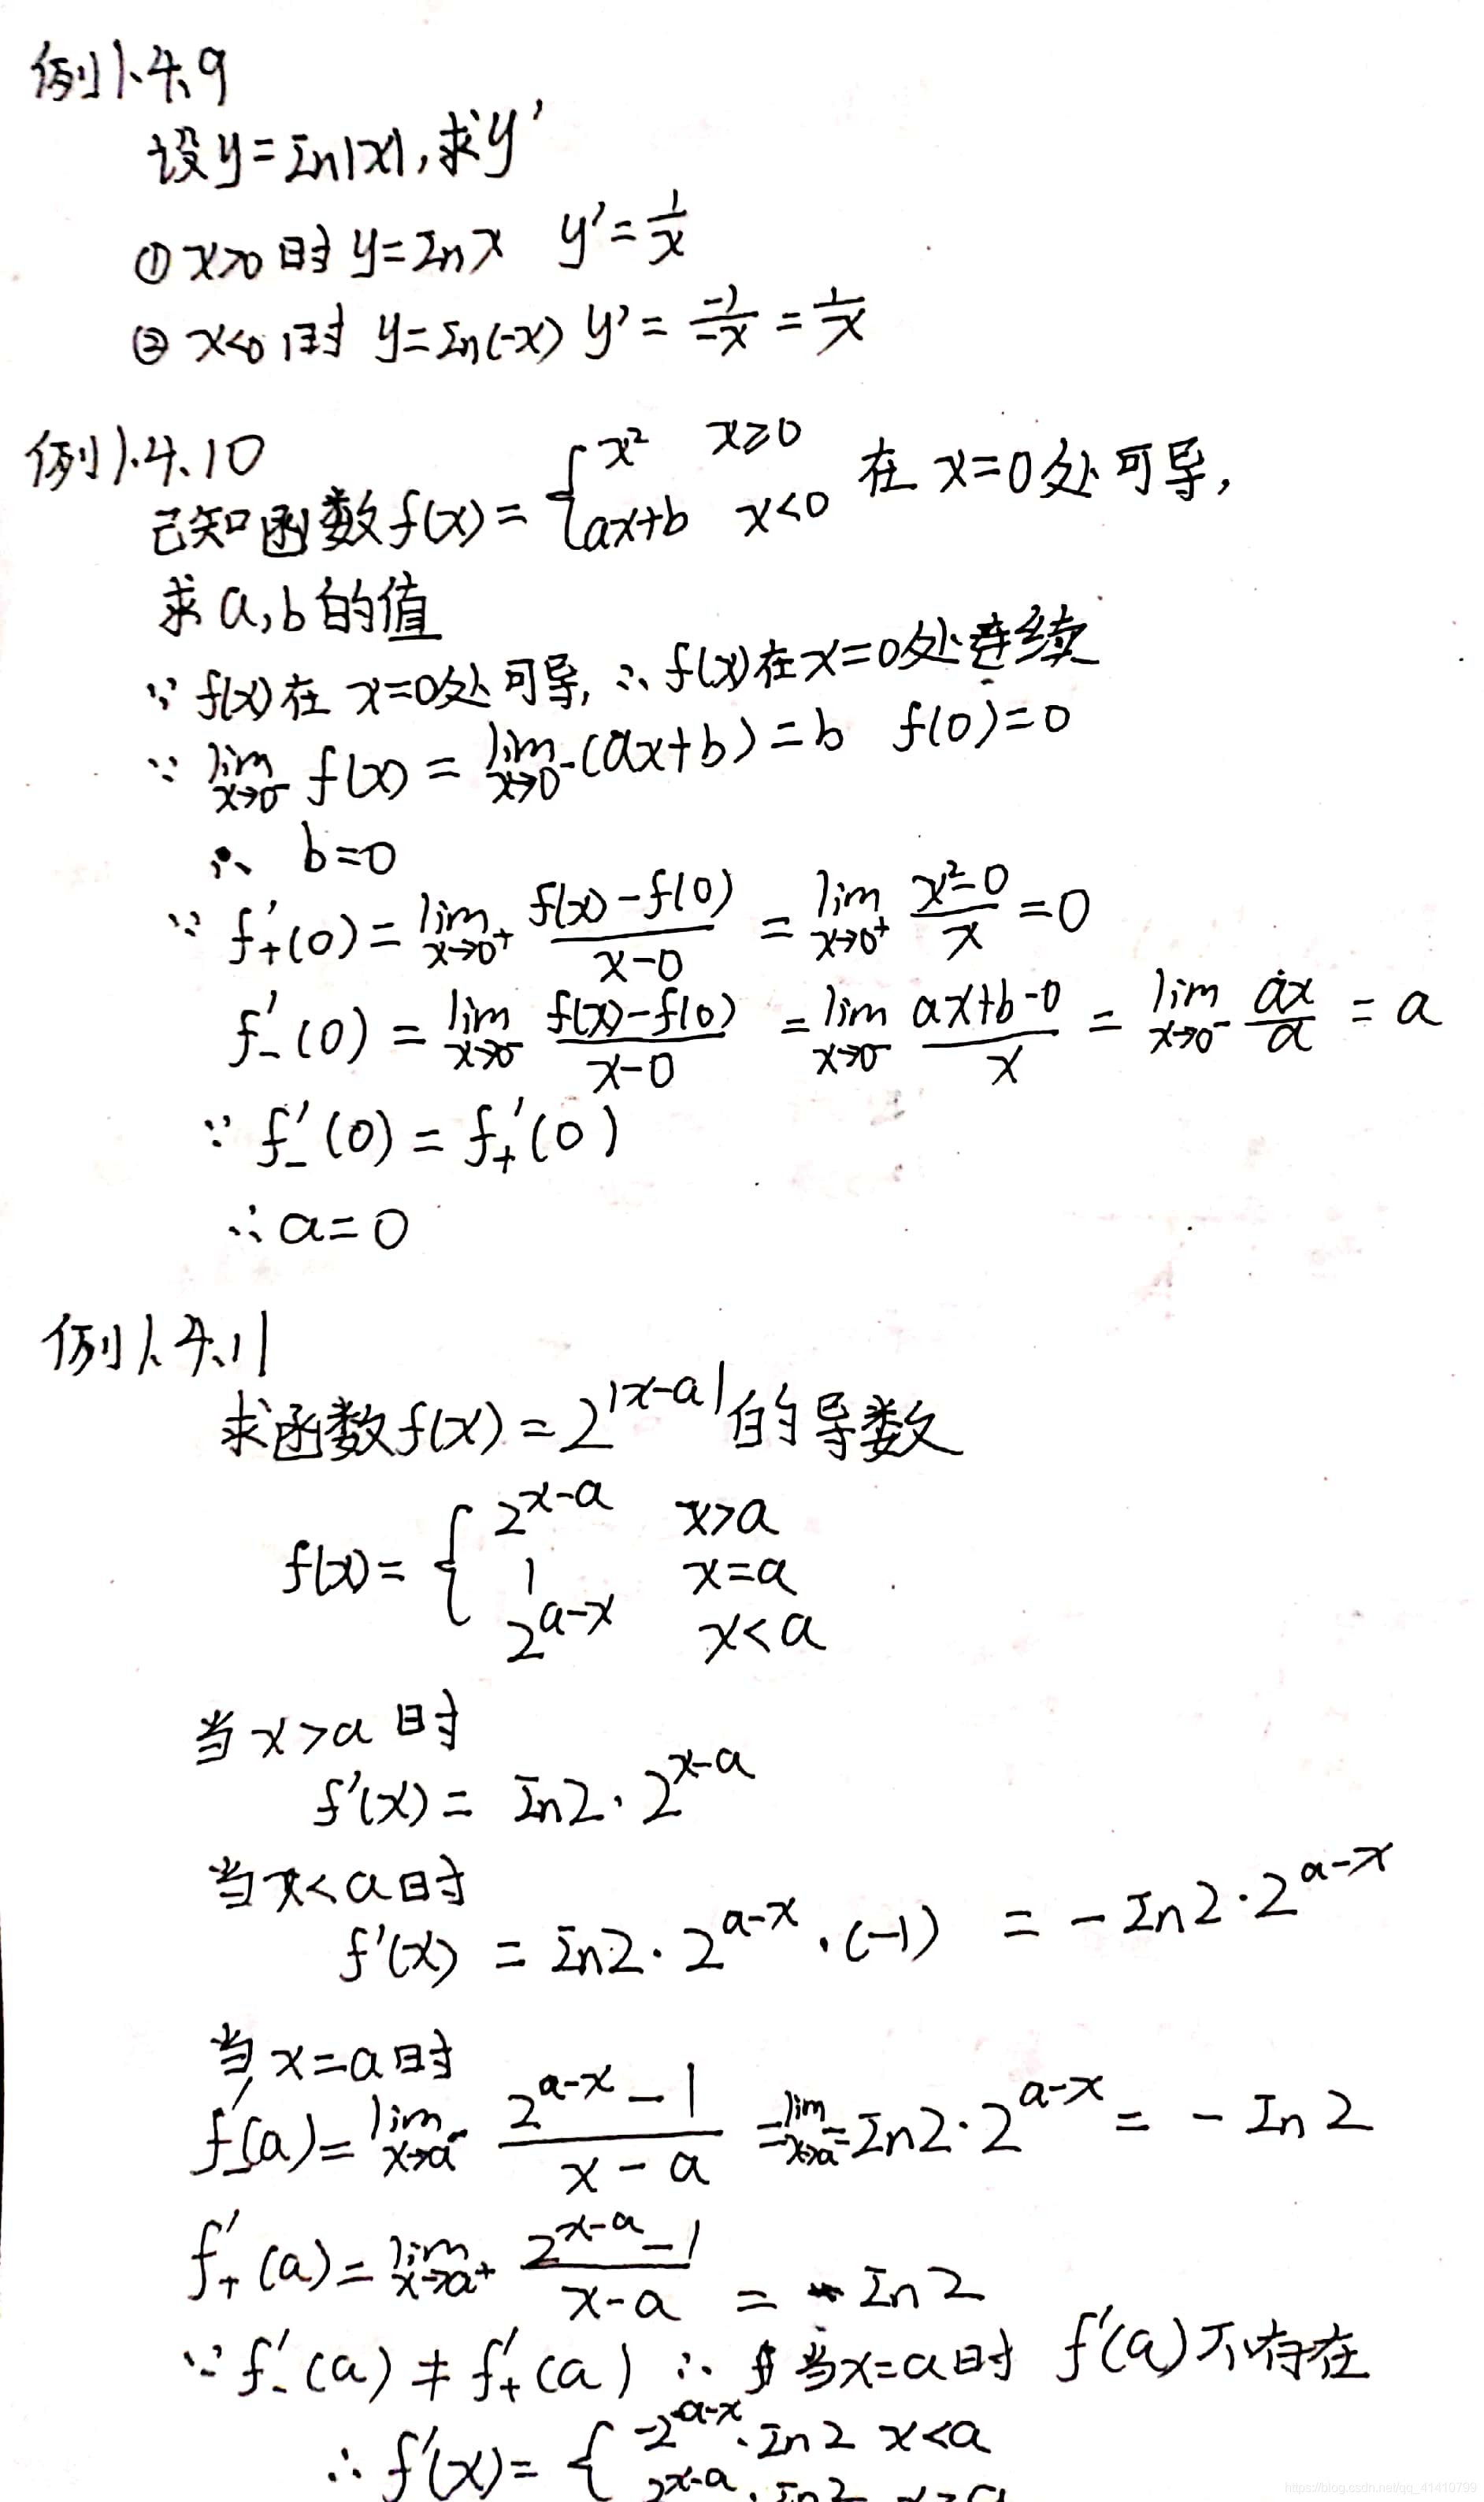 例1.4.9
设y=In|x|,求y'
① x>0时 y=Inx y'=1/x
② x<0时 y=In(-x) y'=-1/-x=1/x
例1.4.10
已知函数f(x)={x² x≥0
ax+b x<0 在x=0处可导,
求a,b的值
∵ f(x)在x=0处可导, ∴ f(x)在x=0处连续
∵ lim x→0⁻ f(x)=lim x→0⁻ (ax+b)=b f(0)=0
∴ b=0
∵ f₊'(0)=lim x→0⁺ (f(x)-f(0))/(x-0)=lim x→0⁺ (x²-0)/x=0
f₋'(0)=lim x→0⁻ (f(x)-f(0))/(x-0)=lim x→0⁻ (ax+b-0)/x=lim x→0⁻ ax/a=a
∵ f₋'(0)=f₊'(0)
∴ a=0
例1.4.11
求函数f(x)=2^|x-a|的导数
f(x)={2^(x-a) x>a
1 x=a
2^(a-x) x<a
当x>a时
f'(x)=In2·2^(x-a)
当x<a时
f'(x)=In2·2^(a-x)·(-1) =-In2·2^(a-x)
当x=a时
f₋'(a)=lim x→a⁻ (2^(a-x)-1)/(x-a)=lim x→a⁻ -In2·2^(a-x)=-In2
f₊'(a)=lim x→a⁺ (2^(x-a)-1)/(x-a)=In2
∵ f₋'(a)≠f₊'(a) ∴ 当x=a时 f'(a)不存在
∴ f'(x)={-2^(a-x)·In2 x<a
2^(x-a)·In2 x>a
https://blog.csdn.net/qq_41410799